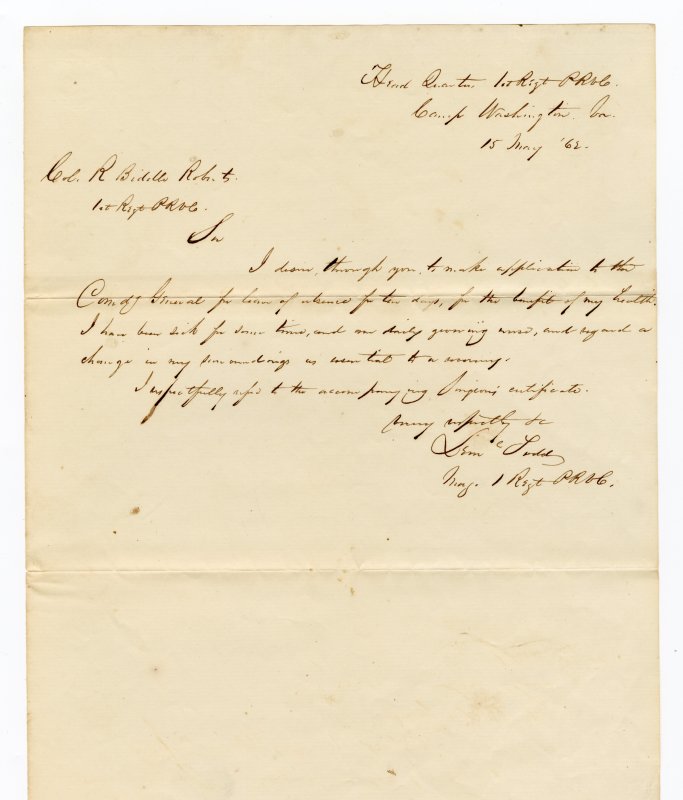 Head Quarters 1st Regt PRVC.
Camp Washington. Va.
15 May '62.
Col. R Biddle Roberts.
1st Regt PRVC.
Sir
I desire, through you, to make application to the
Comdg General for leave of absence for ten days, for the benefit of my health.
I have been sick for some time, and am daily growing worse, and regard a
change in my surroundings as essential to a recovery.
I respectfully refer to the accompanying Surgeon's certificate.
Very respectfully &c
Lem Todd
Maj. 1 Regt PRVC.